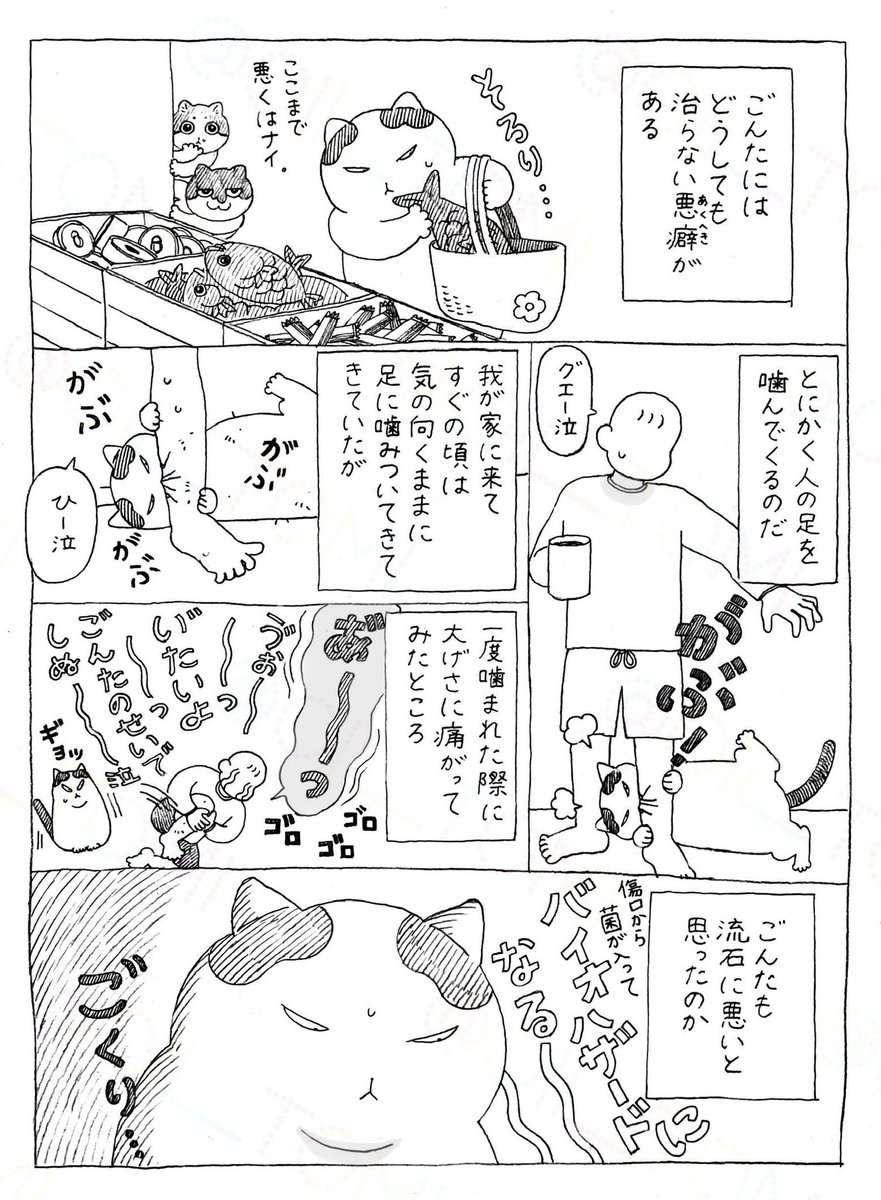 ごんたには
どうしても
治らない悪癖が
あくへき
ある
そろり…
ここまで
悪くはナイ.
とにかく人の足を
噛んでくるのだ
グエー泣
がぶー!
我が家に来て
すぐの頃は
気の向くままに
足に噛みついてきて
きていたが
がぶ
がぶ
がぶ
ひー泣
一度噛まれた際に
大げさに痛がって
みたところ
あ゛ーっ
ゔぉーっ
いたいよーっ
ごんたのせいで
しぬ〜泣
ゴロ
ゴロ
ゴロ
ギョッ
ごんたも
流石に悪いと
思ったのか
傷口から
菌が入って
バイオハザードに
なる〜
ごくり…